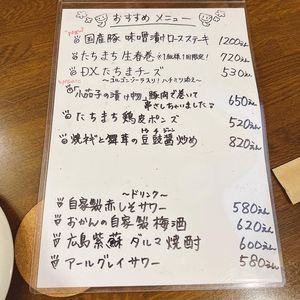 おすすめ メニュー
国産豚 味噌漬けロースステーキ 1200えん
たちまち 生春巻 720えん
DX.たちまチーズ 530えん
〜ゴルゴンゾーラ入り!ハチミツ添え〜
「小茄子の漬け物」豚肉で巻いて
串さしちゃいました 650えん
たちまち鶏皮ポンズ 520えん
焼そばと舞茸の豆鼓醤炒め 820えん
〜ドリンク〜
自家製赤しそサワー 580えん
おかんの自家製梅酒 620えん
広島紫蘇 ダルマ焼酎 600えん
アールグレイサワー 580えん